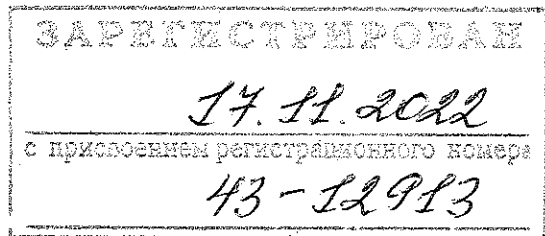 ЗАРЕГИСТРИРОВАН
17.11.2022
с присвоением регистрационного номера
43-12913